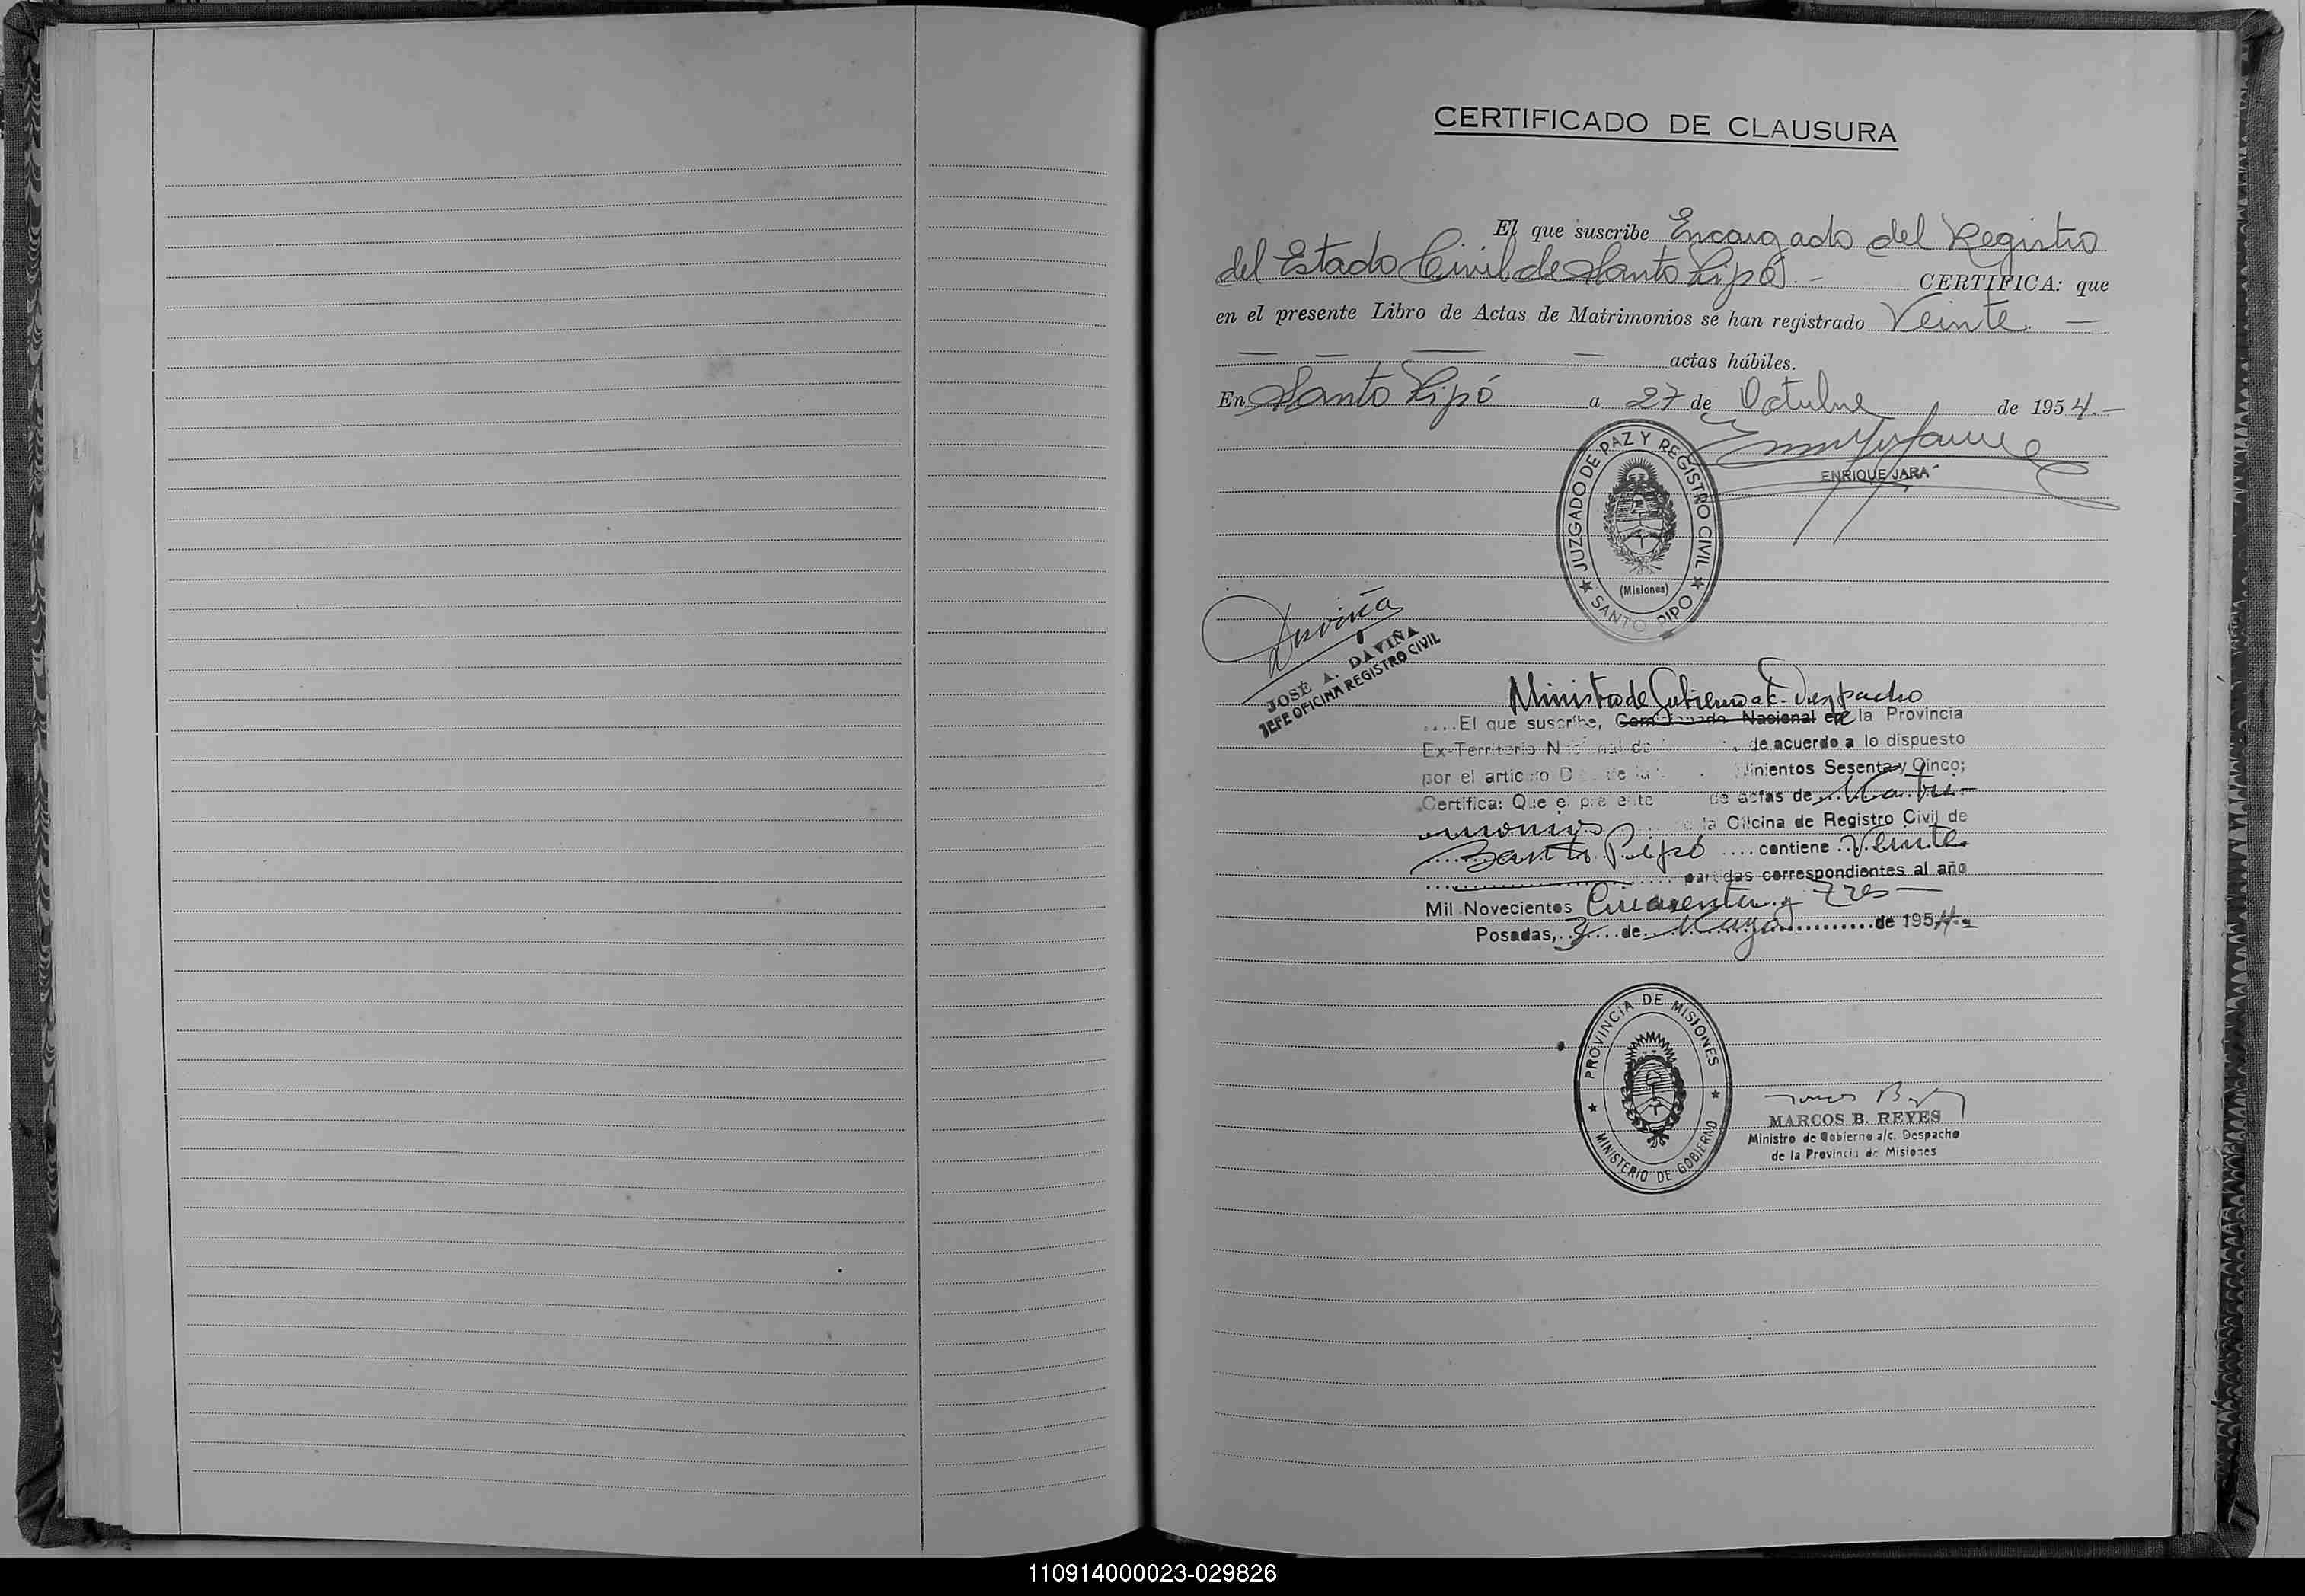 CERTIFICADO DE CLAUSURA
El que suscribe Encargado del Registro
del Estado Civil de Santo Pipó.- CERTIFICA: que
en el presente Libro de Actas de Matrimonios se han registrado Veinte. —
— — — — actas hábiles.
En Santo Pipó a 27 de Octubre de 1954.-
ENRIQUE JARA
JUZGADO DE PAZ Y REGISTRO CIVIL
(Misiones)
SANTO PIPO
Daviña
JOSÉ A. DAVIÑA
JEFE OFICINA REGISTRO CIVIL
Ministro de Gobierno a c. Despacho
....El que suscribe, Nacional de la Provincia
Ex-Territorio Nacional de de acuerdo a lo dispuesto
por el articulo Sesenta y Cinco;
Certifica: Que el presente de actas de Matri-
monios la Oficina de Registro Civil de
Santo Pipó contiene Veinte
partidas correspondientes al año
Mil Novecientos Cincuenta y Tres —
Posadas, de Mayo de 195
PROVINCIA DE MISIONES
MINISTERIO DE GOBIERNO
MARCOS B. REYES
Ministro de Gobierno a/c. Despacho
de la Provincia de Misiones
110914000023-029826